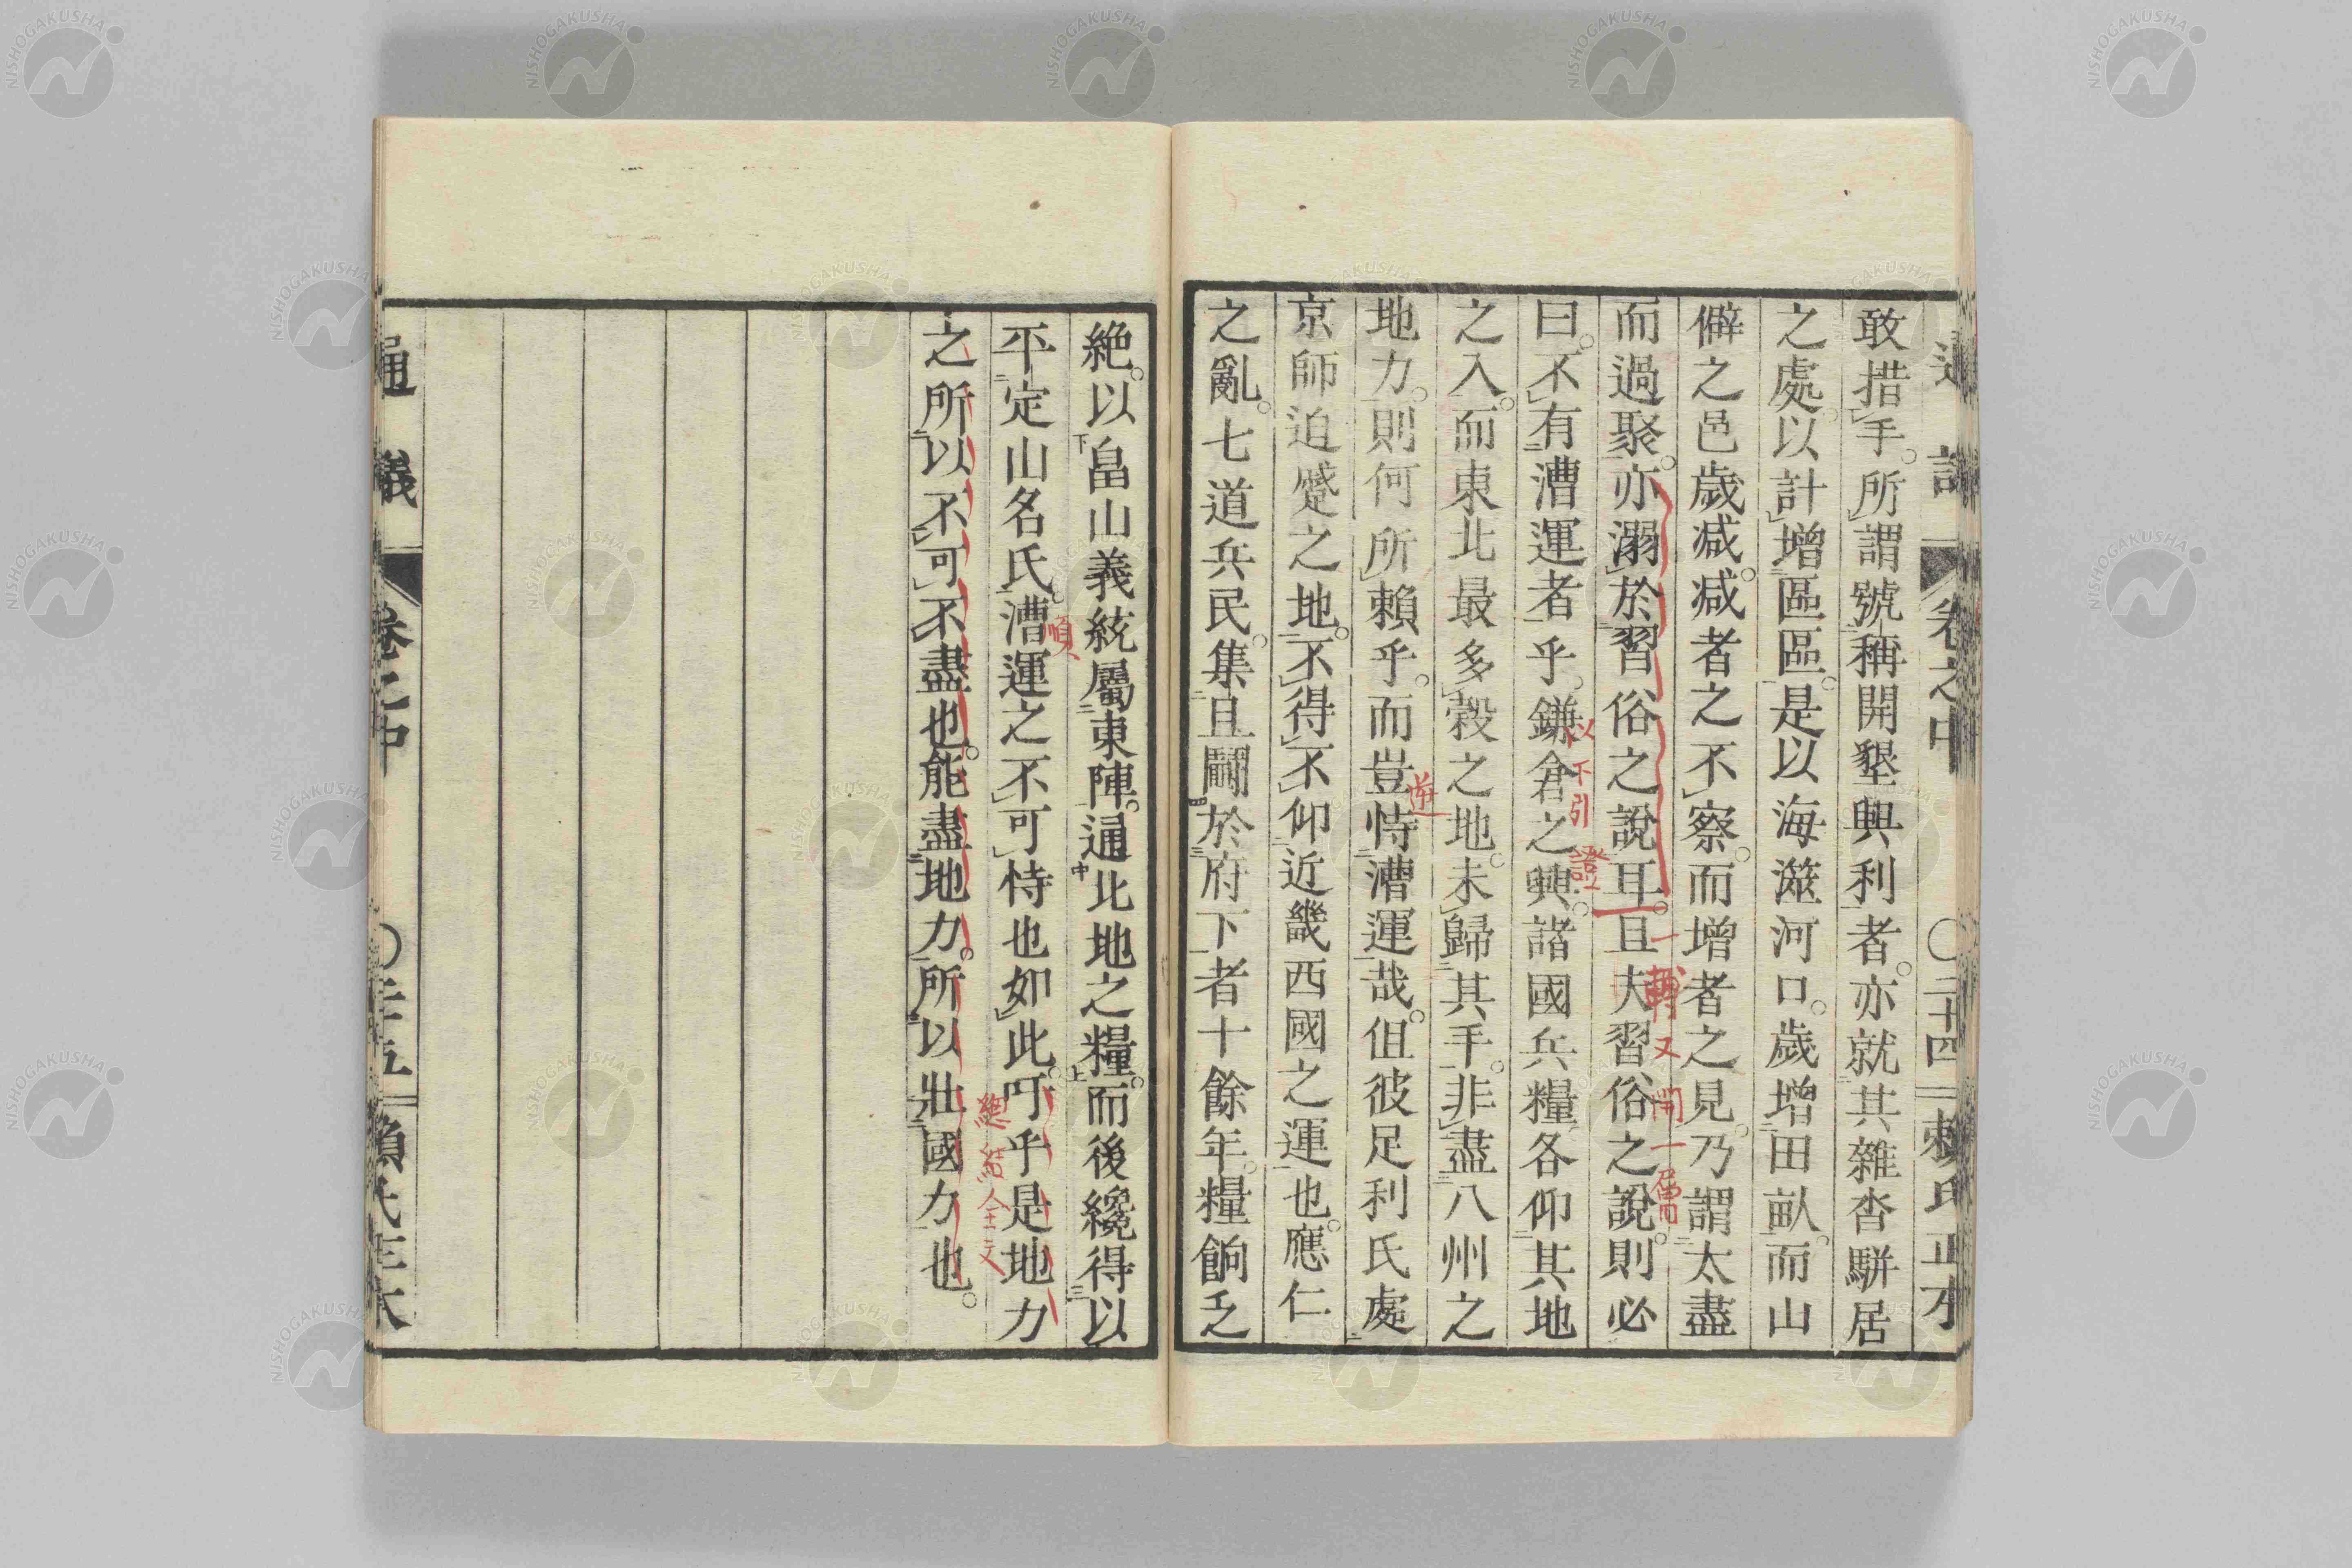 通議 卷之中 〇二十四 賴氏正本
敢措手。所謂號稱開墾興利者。亦就其雜沓駢居
之處。以計增區區。是以海澨河口。歲增田畝。而山
僻之邑歲減。減者之不察。而增者之見。乃謂太盡
而過聚。亦溺於習俗之說耳。且夫習俗之說。則必
一轉又開一層
曰。不有漕運者乎。鎌倉之興。諸國兵糧。各仰其地
以下引證
之入。而東北最多穀之地。未歸其手。非盡八州之
地力。則何所賴乎。而豈恃漕運哉。但彼足利氏處
逆
京師迫蹙之地。不得不仰近畿西國之運也。應仁
之亂。七道兵民。集且鬪於府下者十餘年。糧餉乏
絶。以畠山義統屬東陣。通北地之糧。而後纔得以
平定山名氏。漕運之不可恃也如此。吁乎是地力
順
之所以不可不盡也。能盡地力。所以壯國力也。
總結全文
通議 卷之中 〇二十五 賴氏正本
NISHOGAKUSHA